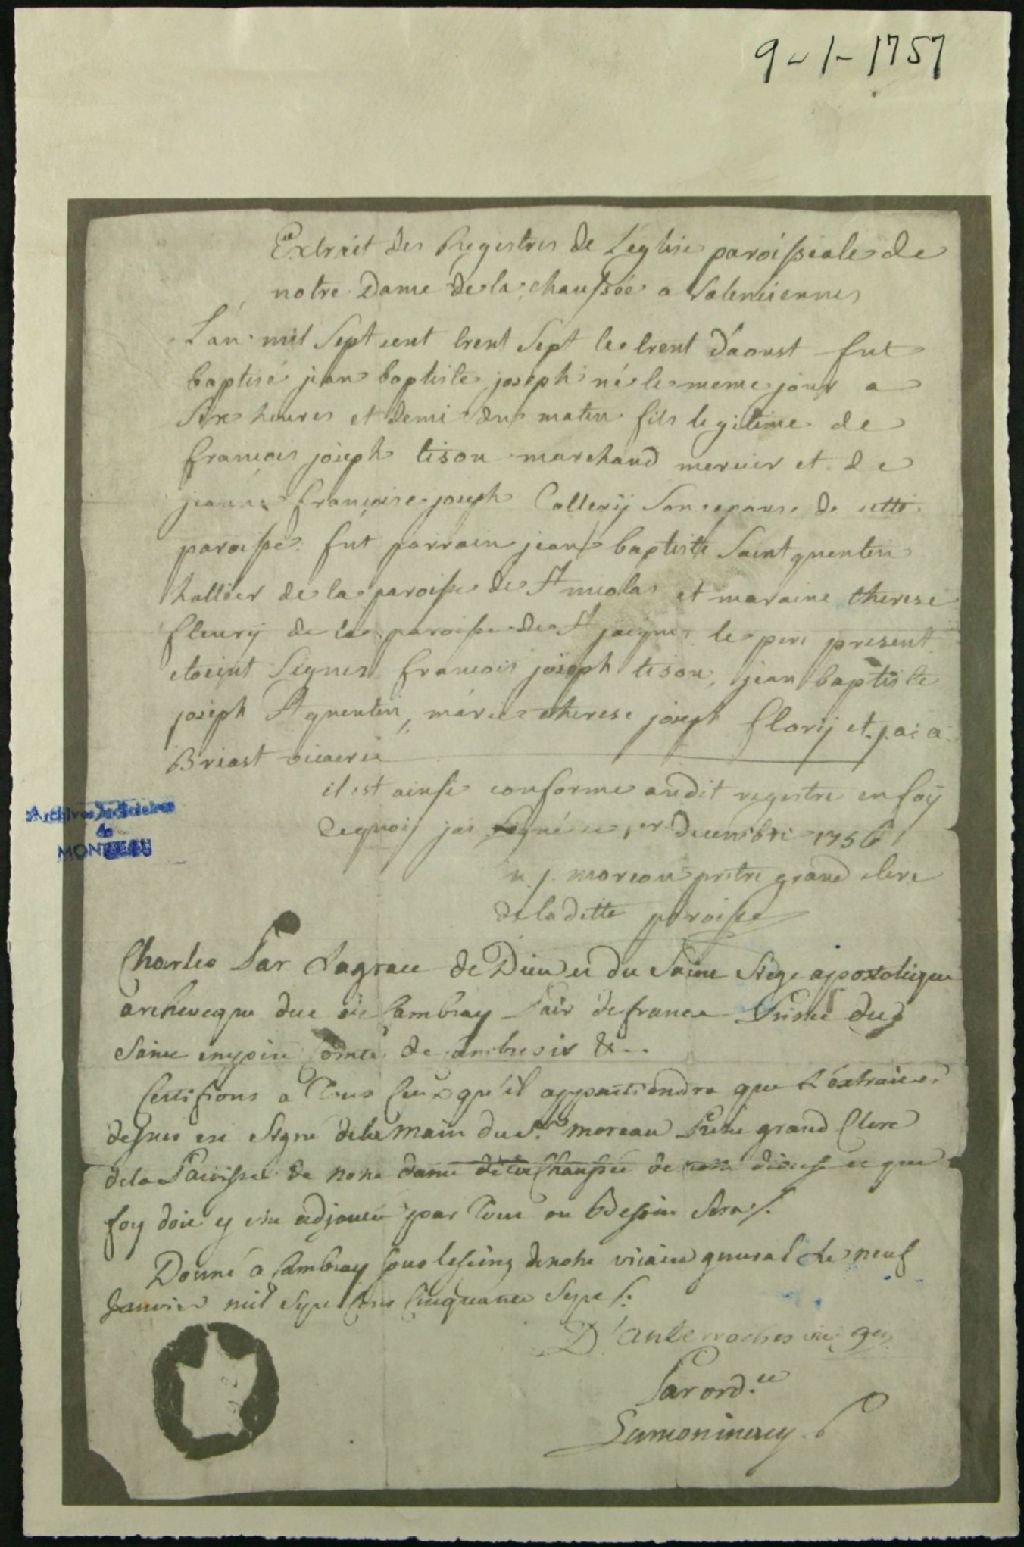 9-1-1757
Extrait des Registres de L'eglise paroissiale de
notre Dame de la chaussée a Valenciennes
L'an mil sept cent trent sept le trent d'aoust fut
baptisé jean baptiste joseph né le meme jour a
six heures et demi du matin fils legitime de
francois joseph tison marchand mercier et de
jeanne françoise joseph Collerij son epouse de cette
paroisse fut parrain jean baptiste Saint quentin
hallier de la paroisse de St nicolas et maraine therese
fleurij de la paroisse de St jacques le pere present
etoient Signes francois joseph tison, jean baptiste
joseph St quentin, marie therese joseph florij et
Briast vicaire
il est ainsi conforme audit registre en foij
dequoij jai signé ce 1er decembre 1756
n. j. moreau pretre grand clerc
de ladette paroisse
Archives Judiciaires
de
MONTREAL
Charles Par La grace de Dieu et du Saint Siège apostolique
archeveque duc de Cambray Pair de france Prince du
Saint empire Comte de Cambresis &..
Certifions a Tous Ceux qu'il appartiendra que L'extrait cy
dessus est Signé de la main du Sr. moreau Pretre grand Clerc
de la Paroisse de notre dame de la Chaussée de notre diocese et que
foy doit y etre adjoutée par Tout ou Besoin Sera /.
Donné a Cambray sous le seing de notre vicaire general Le neuf
Janvier mil Sept Cens Cinquante Sept /.
D'anterroches vic. gen.
Par ord.ce